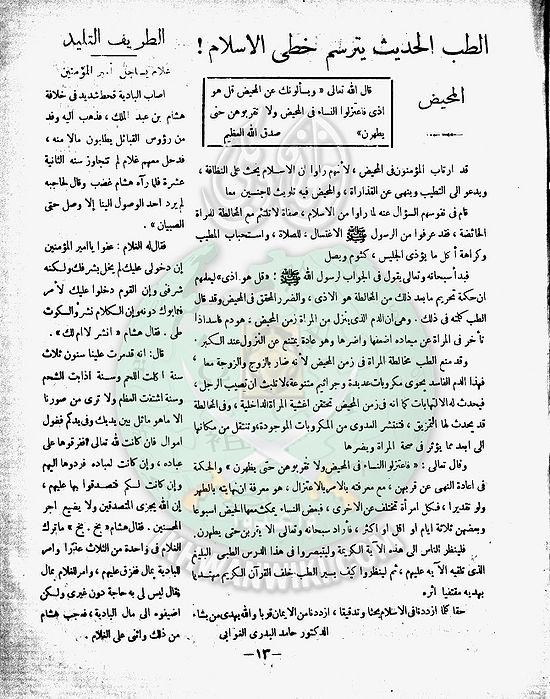 الطب الحديث يترسم خطى الاسلام !
المحيض
قال الله تعالى « ويسألونك عن المحيض قل هو
اذى فاعتزلوا النساء فى المحيض ولا تقربوهن حتى
يطهرن» صدق الله العظيم
قد ارتاب المؤمنون فى المحيض ، لأنهم راوا ان الاسلام يحث على النظافة ،
ويدعو الى التطيب وينهى عن القذاراة ، والمحيض فيه تلويث للجنسين مما
قام فى نفوسهم السؤال عنه لما راوا من الاسلام ، صفاة لاتلتئم مع المخالطة للمراة
الحائضة ، فقد عرفوا من الرسول ﷺ الاغتسال ، للصلاة ، واستحباب المطيب
وكراهة أكل ما يؤذى الجليس ، كثوم وبصل
فبدأ سبحانه وتعالى يقول فى الجواب لرسول الله ﷺ : «قل هو اذى» ليعلمهم
ان حكمة تحريم ما بعد ذلك من المخالطة هو الاذى ، والضرر المحقق فى المحيض وقد قال
الطب كلمته فى ذلك . وهى ان الدم الذى ينزل من المراة زمن المحيض ، هو دم فاسد اذا
تأخر فى المراة عن ميعاده اضعفها واضرها وهو عادة يمتنع عن النزول عند الكبر .
وقد منع الطب مخالطة المراة فى زمن المحيض لأنه ضار بالزوج والزوجة معا
فهذا الدم الفاسد يحوى مكروبات عديدة وجراثيم متنوعة ، لاتلبث ان تصيب الرجل ،
فيحدث له الالتهابات كما انه فى زمن المحيض تحتقن اغشية المراة الداخلية ، وفى المخالطة
قد يحدث لها التمزيق ، فتنتشر العدوى من المكروبات الموجودة ، وتنتقل من مكانها
الى ابعد مما يؤثر فى صحة المراة ويضرها
وقال تعالى : « فاعتزلوا النساء فى المحيض ولا تقربوهن حتى يطهرن » والحكمة
فى اعادة النهى عن قربهن ، مع معرفته بالامر بالاعتزال ، هو معرفة ان نهايته بالطهر
ولو تقديرا ، فكل امرأة تختلف عن الاخرى ، فبعض النساء يمكث معها الحيض اسبوعا
وبعضهن ثلاثة ايام او اقل او اكثر ، فأراد سبحانه وتعالى الا يقربن حتى يطهرن.
فلينظر الناس الى هذه الآية الكريمة وليتبصروا فى هذا الدرس الطبى البليغ
الذى تلقيه الآيه عليهم ، ثم لينظروا كيف يسير الطب خلف القرآن الكريم مهتديا
بهديه مقتفيا اثره
حقا كلما ازددنا فى الاسلام بحثا وتدقيقا ، ازددنا من الايمان قربا والله يهدى من يشاء
الدكتور حامد البدرى الغوابى
الطريف التليد
غلام يساجل أمير المؤمنين
اصاب البادية قحط شديد فى خلافة
هشام بن عبد الملك ، فذهب اليه وفد
من رؤوس القبائل يطلبون مالا منه ،
فدخل معهم غلام لم تتجاوز سنه الثانية
عشرة فلما رآه هشام غضب وقال لحاجبه
لم يرد احد الوصول الينا إلا وصل حتى
الصبيان » .
فقال له الغلام : عفوا يا امير المؤمنين
إن دخولى عليك لم يخل بشرفك ولكنه
شرفنى وإن القوم دخلوا عليك لأمر
فهابوك دونه وإن الكلام نشر والسكوت
طى . فقال هشام « انشر لا ام لك» .
قال: انه قد مرت علينا سنون ثلاث
سنة اكلت اللحم وسنة اذابت الشحم
وسنة اشتفت العظم ولا ترى من صورنا
الا ماهو ماثل بين يديك وفى يدكم فضول
اموال فان كانت لله تعالى ففرقوها على
عباده ، وإن كانت لعباده فردوها اليهم
وإن كانت لكم فتصدقوا بها عليهم ،
إن الله يجزى المتصدقين ولا يضيع اجر
المحسنين . فقال هشام « بخ . بخ » ماترك
الغلام فى واحدة من الثلاث عذرا وامر
للبادية بمال ففرق عليهم ، وامر للغلام بمال
فقال ليس لى به حاجة دون غيرى ولكن
اضيفوه الى مال البادية ، فعجب هشام
من ذلك واثنى على الغلام .
—١٣—